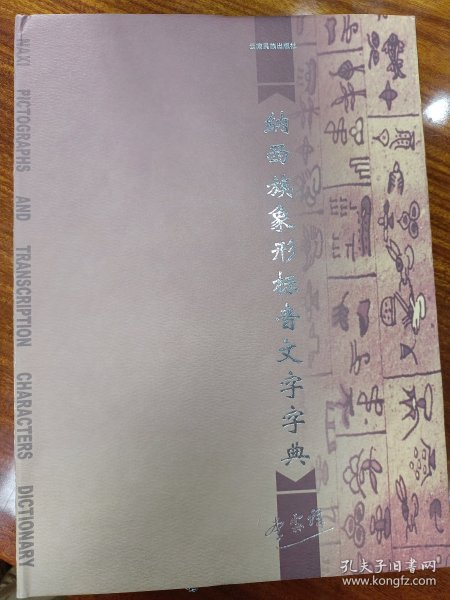 云南民族出版社
納西族象形标音文字字典
NAXI PICTOGRAPHS AND TRANSCRIPTION CHARACTERS DICTIONARY
孔夫子旧书网
www.kongfz.com